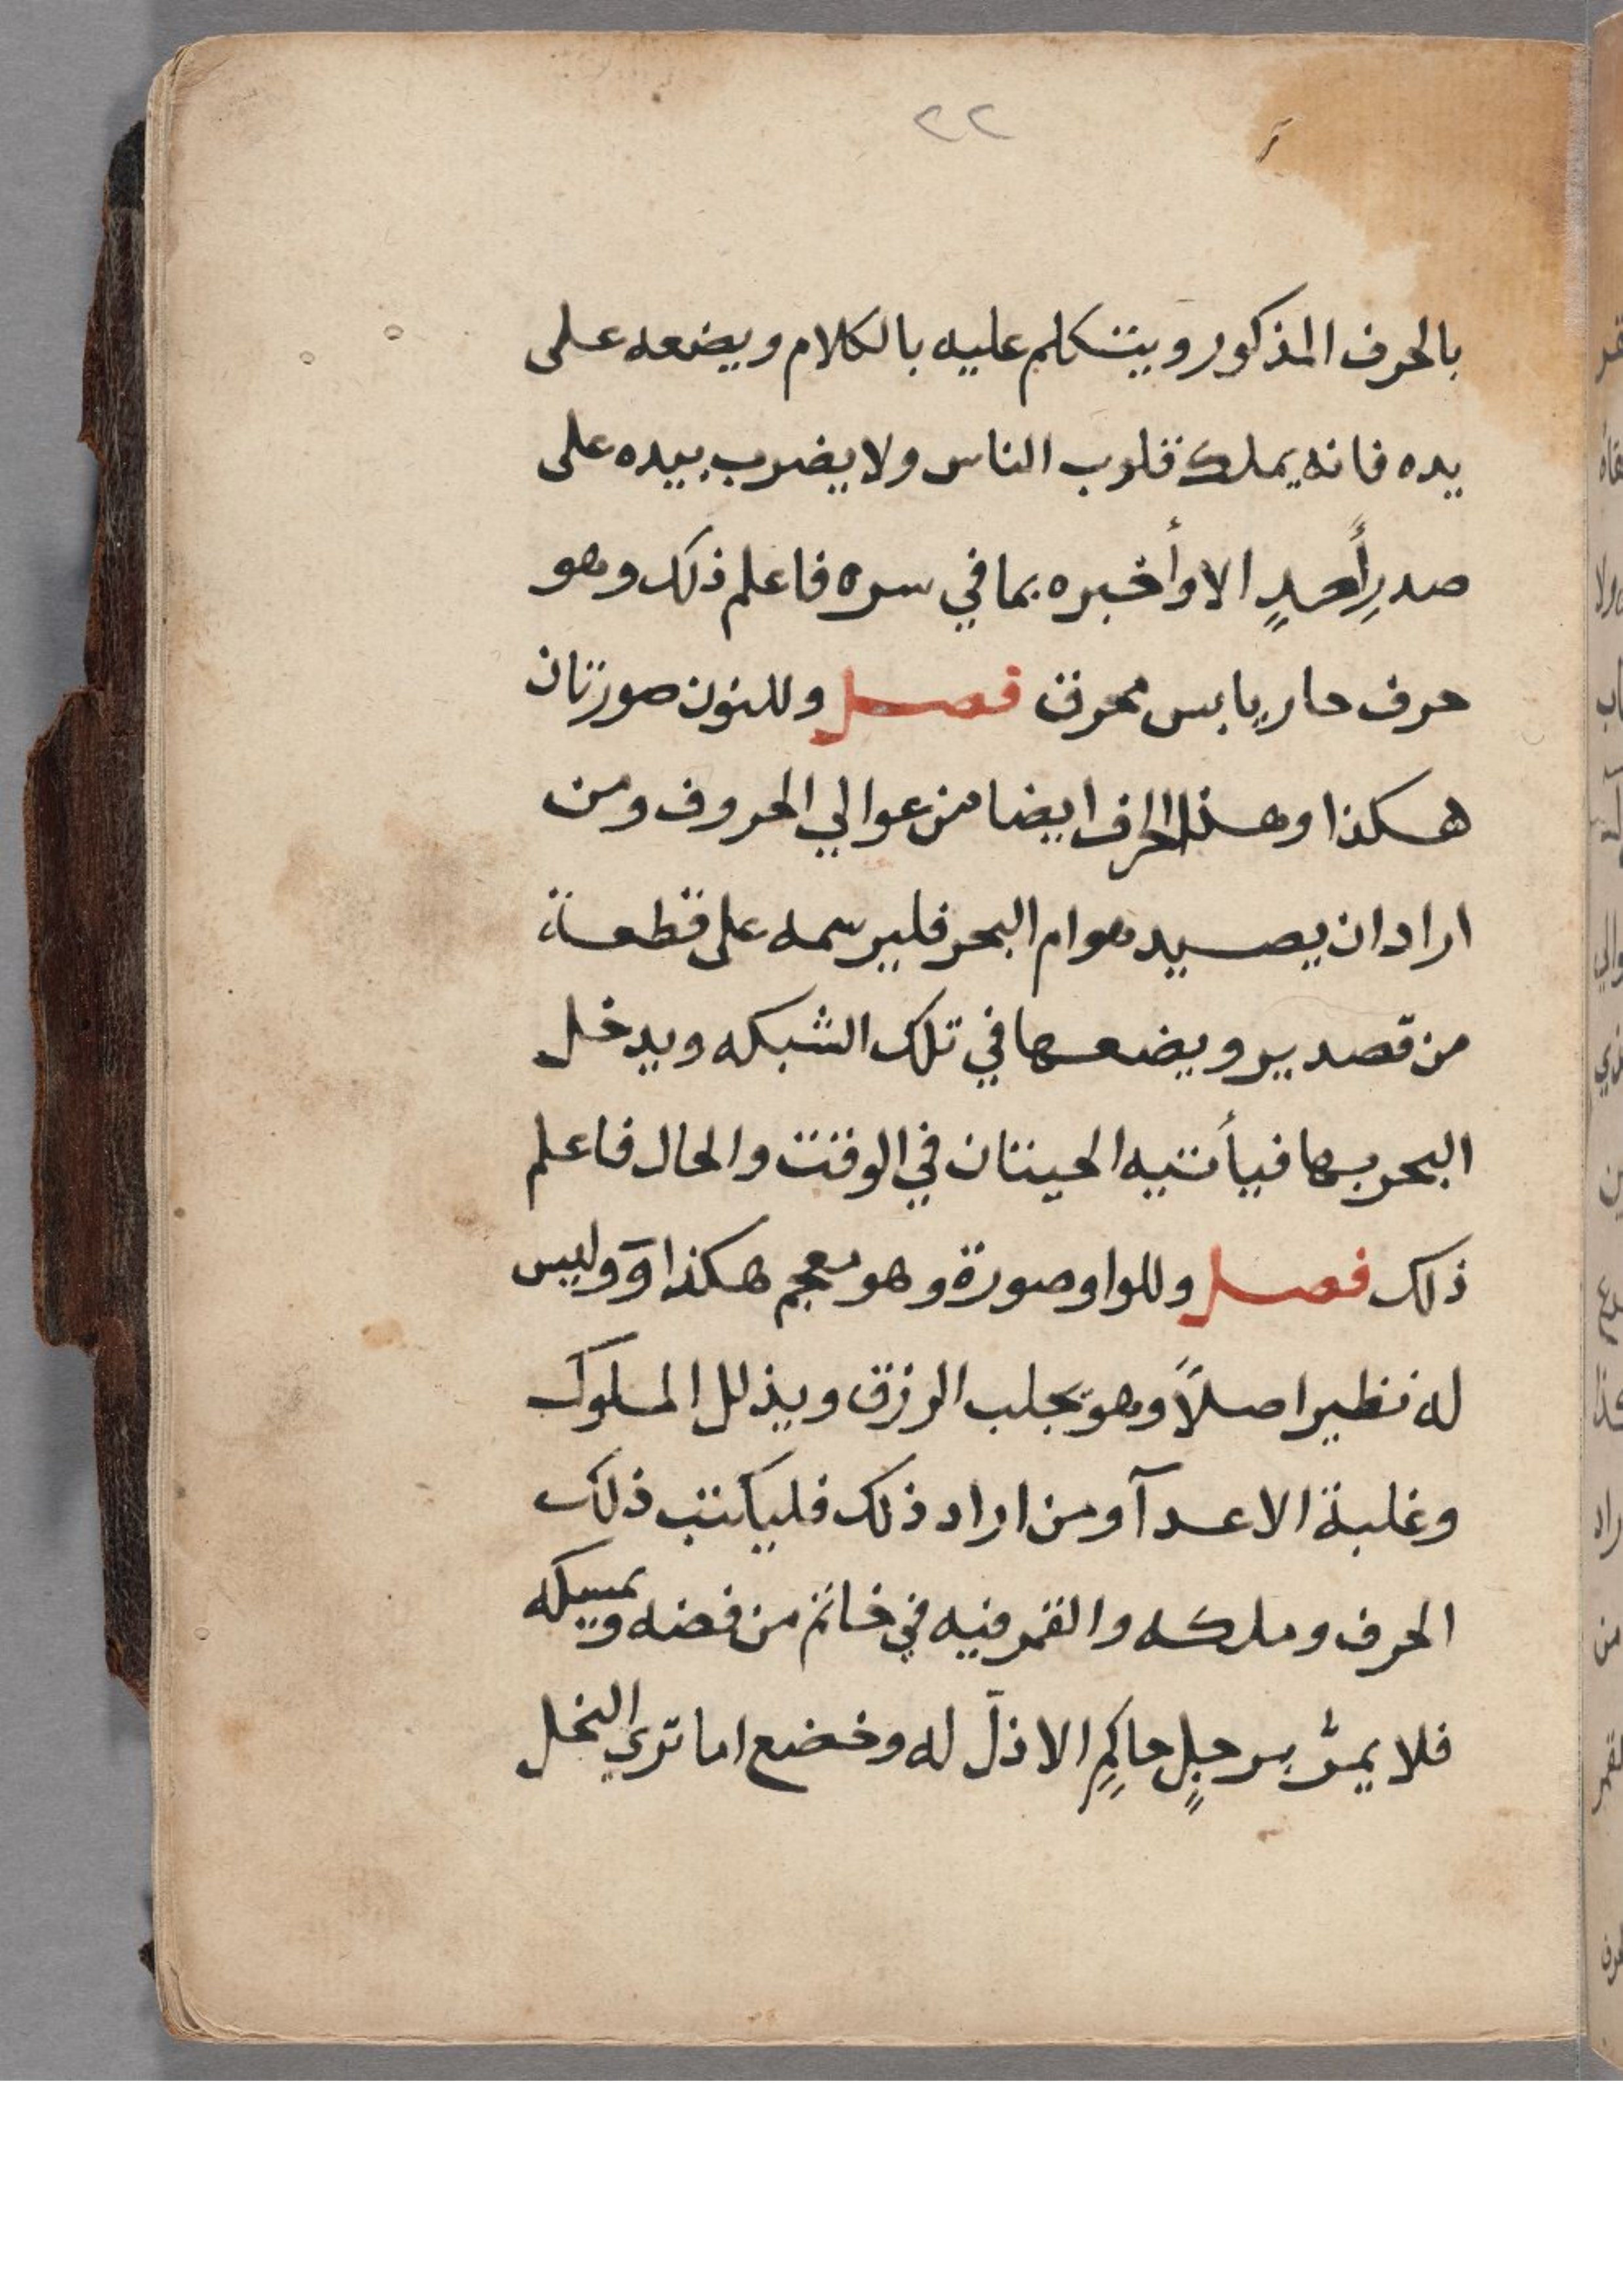 ٢٢
بالحرف المذكور ويتكلم عليه بالكلام ويضعه على
يده فانه يملك قلوب الناس ولا يضرب بيده على
صدرِ أَحدٍ الا وأخبره بما في سره فاعلم ذلك وهو
حرف حار يابس محرق فصل وللنون صورتان
هكذا وهذا الحرف ايضا من عوالي الحروف ومن
اراد ان يصيد هوام البحر فليرسمه على قطعة
من قصدير ويضعها في تلك الشبكه ويدخل
البحر بها فيأتيه الحيتان في الوقت والحال فاعلم
ذلك فصل وللواو صورة وهو معجم هكذا وَ وليس
له نظير اصلاً وهو يجلب الرزق ويذلل الملوك
وغلبة الاعدآ ومن اراد ذلك فليكتب ذلك
الحرف وملكه والقمر فيه في خاتم من فضه ويمسكه
فلا يمرُّ برجلٍ حاكمٍ الا ذلّ له وخضع اما ترى النخل